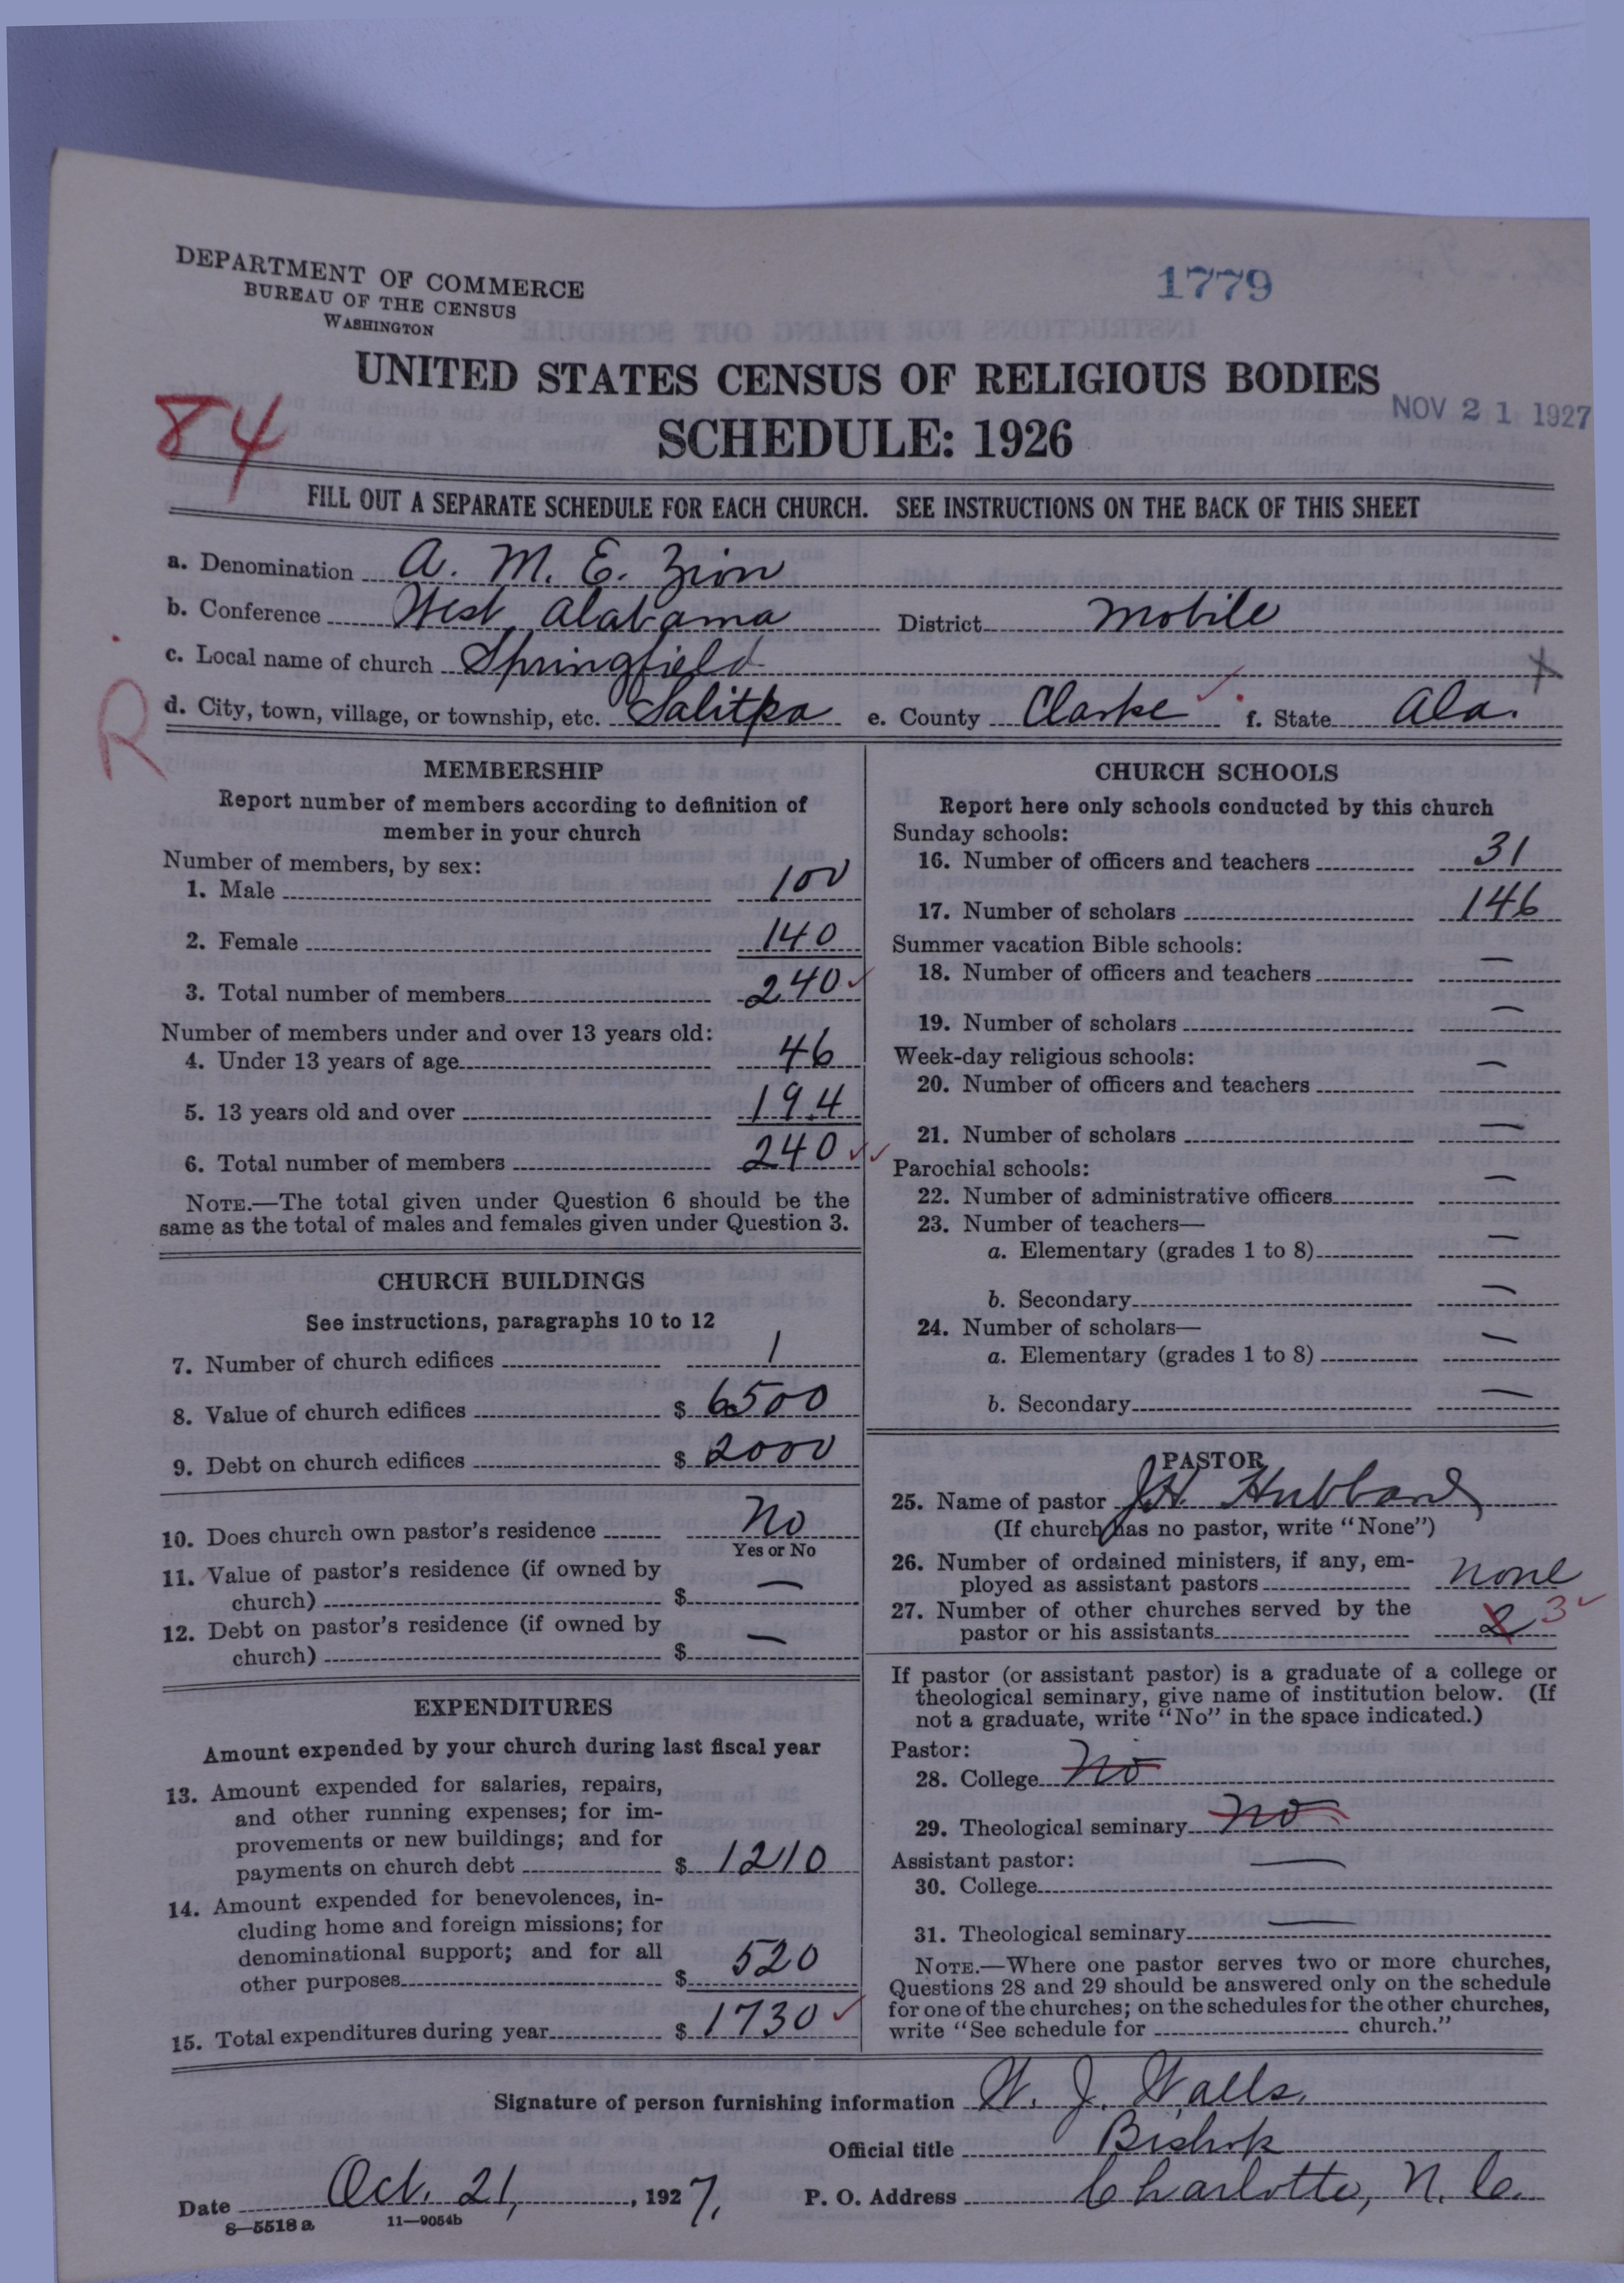 DEPARTMENT OF COMMERCE
BUREAU OF THE CENSUS
WASHINGTON
1779
UNITED STATES CENSUS OF RELIGIOUS BODIES
NOV 21 1927
84
SCHEDULE: 1926
FILL OUT A SEPARATE SCHEDULE FOR EACH CHURCH. SEE INSTRUCTIONS ON THE BACK OF THIS SHEET
a. Denomination A. M. E. Zion
b. Conference West Alabama District Mobile
c. Local name of church Springfield
R
d. City, town, village, or township, etc. Salitpa e. County Clarke f. State Ala.
MEMBERSHIP
Report number of members according to definition of
member in your church
Number of members, by sex:
1. Male 100
2. Female 140
3. Total number of members 240
Number of members under and over 13 years old:
4. Under 13 years of age 46
5. 13 years old and over 194
6. Total number of members 240
NOTE.—The total given under Question 6 should be the
same as the total of males and females given under Question 3.
CHURCH BUILDINGS
See instructions, paragraphs 10 to 12
7. Number of church edifices 1
8. Value of church edifices $ 6500
9. Debt on church edifices $ 2000
10. Does church own pastor's residence No
Yes or No
11. Value of pastor's residence (if owned by
church) $ —
12. Debt on pastor's residence (if owned by
church) $ —
EXPENDITURES
Amount expended by your church during last fiscal year
13. Amount expended for salaries, repairs,
and other running expenses; for im-
provements or new buildings; and for
payments on church debt $ 1210
14. Amount expended for benevolences, in-
cluding home and foreign missions; for
denominational support; and for all
other purposes $ 520
15. Total expenditures during year $ 1730
CHURCH SCHOOLS
Report here only schools conducted by this church
Sunday schools:
16. Number of officers and teachers 31
17. Number of scholars 146
Summer vacation Bible schools:
18. Number of officers and teachers —
19. Number of scholars —
Week-day religious schools:
20. Number of officers and teachers —
21. Number of scholars —
Parochial schools:
22. Number of administrative officers —
23. Number of teachers—
a. Elementary (grades 1 to 8) —
b. Secondary —
24. Number of scholars—
a. Elementary (grades 1 to 8) —
b. Secondary —
PASTOR
25. Name of pastor J.H. Hubbard
(If church has no pastor, write "None")
26. Number of ordained ministers, if any, em-
ployed as assistant pastors none
27. Number of other churches served by the
pastor or his assistants 2 3
If pastor (or assistant pastor) is a graduate of a college or
theological seminary, give name of institution below. (If
not a graduate, write "No" in the space indicated.)
Pastor:
28. College No
29. Theological seminary No
Assistant pastor:
30. College —
31. Theological seminary —
NOTE.—Where one pastor serves two or more churches,
Questions 28 and 29 should be answered only on the schedule
for one of the churches; on the schedules for the other churches,
write "See schedule for church."
Signature of person furnishing information W. J. Walls.
Official title Bishop
Date Oct. 21, 1927. P. O. Address Charlotte, N. C.
8—5518 a 11—9054b